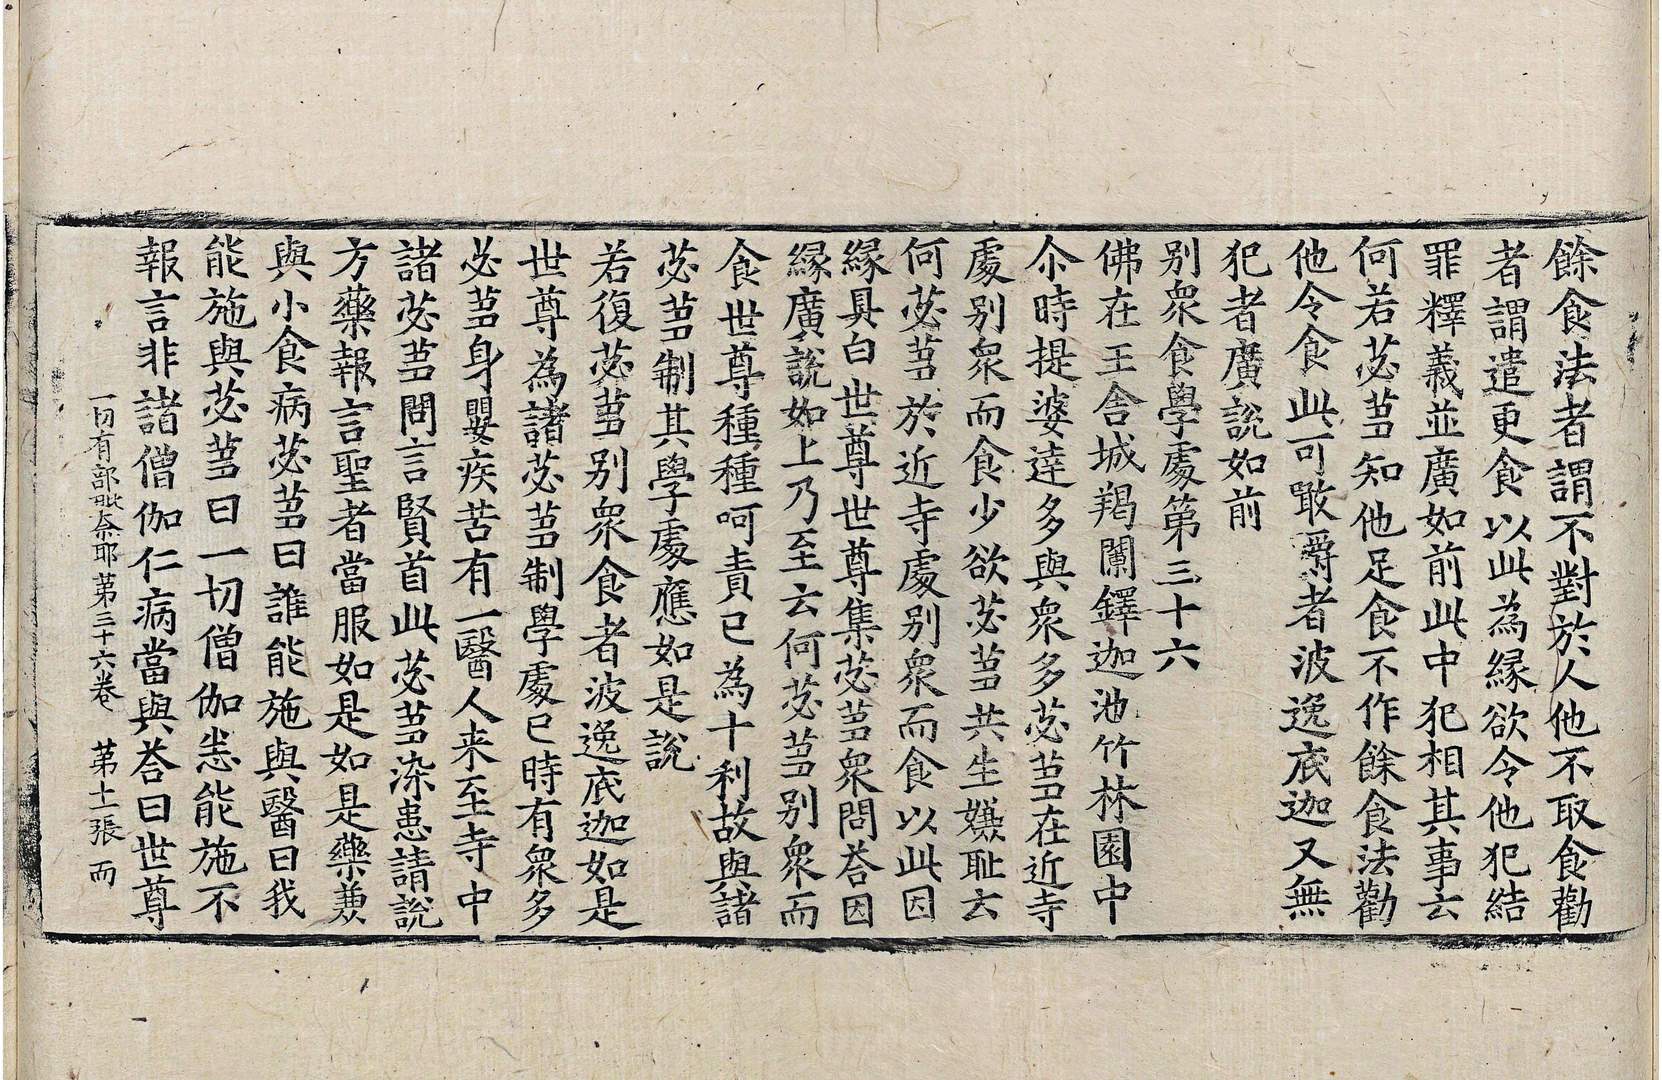 餘食法者謂不對於人他不取食勸
者謂遣更食以此為縁欲令他犯結
罪釋義並廣如前此中犯相其事云
何若苾芻知他足食不作餘食法勸
他令食此可噉嚼者波逸底迦又無
犯者廣說如前
别衆食學處第三十六
佛在王舍城羯闌鐸迦池竹林園中
尒時提婆達多與衆多苾芻在近寺
處别衆而食少欲苾芻共生嫌耻云
何苾芻於近寺處别衆而食以此因
縁具白世尊世尊集苾芻衆問荅因
縁廣說如上乃至云何苾芻别衆而
食世尊種種呵責已為十利故與諸
苾芻制其學處應如是說
若復苾芻别衆食者波逸底迦如是
世尊為諸苾芻制學處已時有衆多
苾芻身嬰疾苦有一醫人来至寺中
諸苾芻問言賢首此苾芻染患請說
方藥報言聖者當服如是如是藥兼
與小食病苾芻曰誰能施與醫曰我
能施與苾芻曰一切僧伽恙能施不
報言非諸僧伽仁病當與荅曰世尊
一切有部毗奈耶第三十六卷 第十一張 而